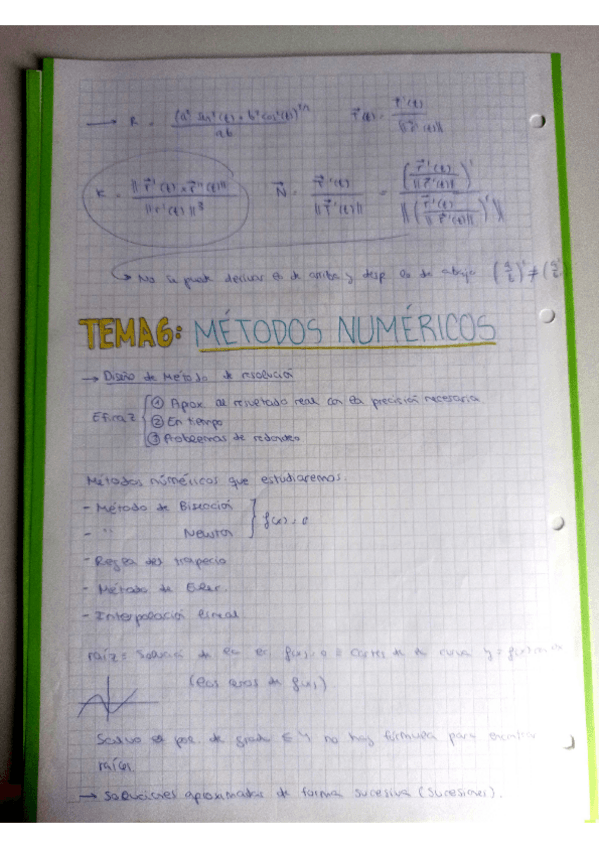 → R = (a² sen²(t) + b² cos²(t))^3/2 / ab    T(t) = r'(t) / ||r'(t)||
K = ||r'(t) × r''(t)|| / ||r'(t)||³    N = T'(t) / ||T'(t)|| = (r'(t) / ||r'(t)||)' / ||(r'(t) / ||r'(t)||)'||
↳ No se puede derivar lo de arriba y desp lo de abajo (a/b)' ≠ (a'/b'
TEMA6: MÉTODOS NUMÉRICOS
→ Diseño de Método de resolución
Eficaz { ① Aprox al resultado real con la precisión necesaria
② En tiempo
③ Problemas de redondeo
Métodos númericos que estudiaremos.
- Método de Bisección } f(x)=0
- " Newton
- Regla del trapecio
- Método de Euler.
- Interpolación lineal
raíz = Solución de la ec f(x)=0 o cortes de la curva y=f(x)
(los ceros de f(x))
Salvo pol. de grado ≤ 4 no hay fórmula para encontrar
raíces
→ soluciones aproximadas de forma sucesiva (sucesiones).